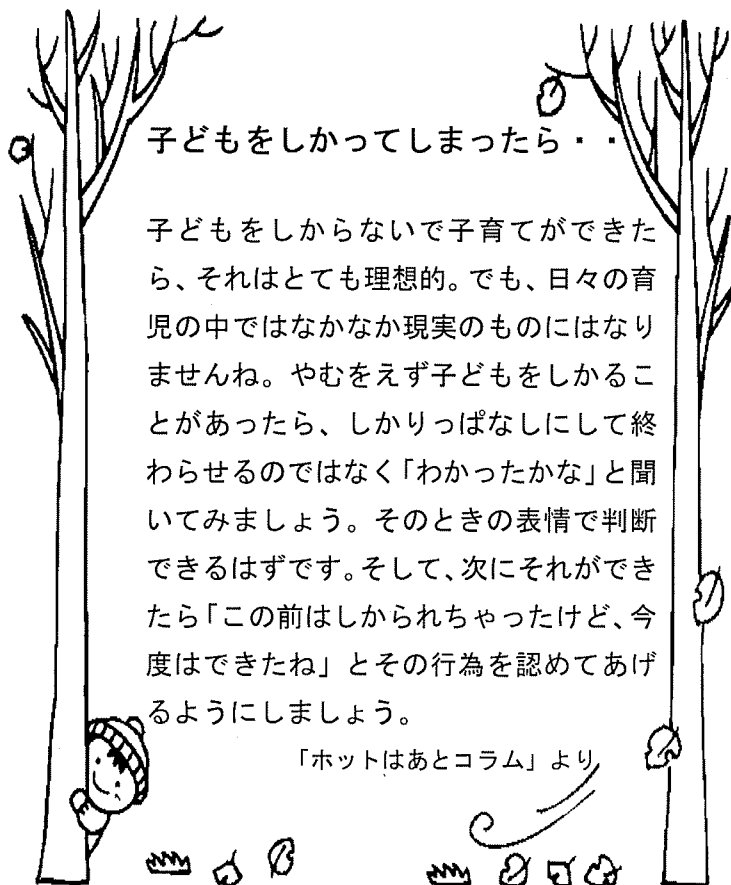 子どもをしかってしまったら・・
子どもをしからないで子育てができた
ら、それはとても理想的。でも、日々の育
児の中ではなかなか現実のものにはなり
ませんね。やむをえず子どもをしかるこ
とがあったら、しかりっぱなしにして終
わらせるのではなく「わかったかな」と聞
いてみましょう。そのときの表情で判断
できるはずです。そして、次にそれができ
たら「この前はしかられちゃったけど、今
度はできたね」とその行為を認めてあげ
るようにしましょう。
「ホットはあとコラム」より